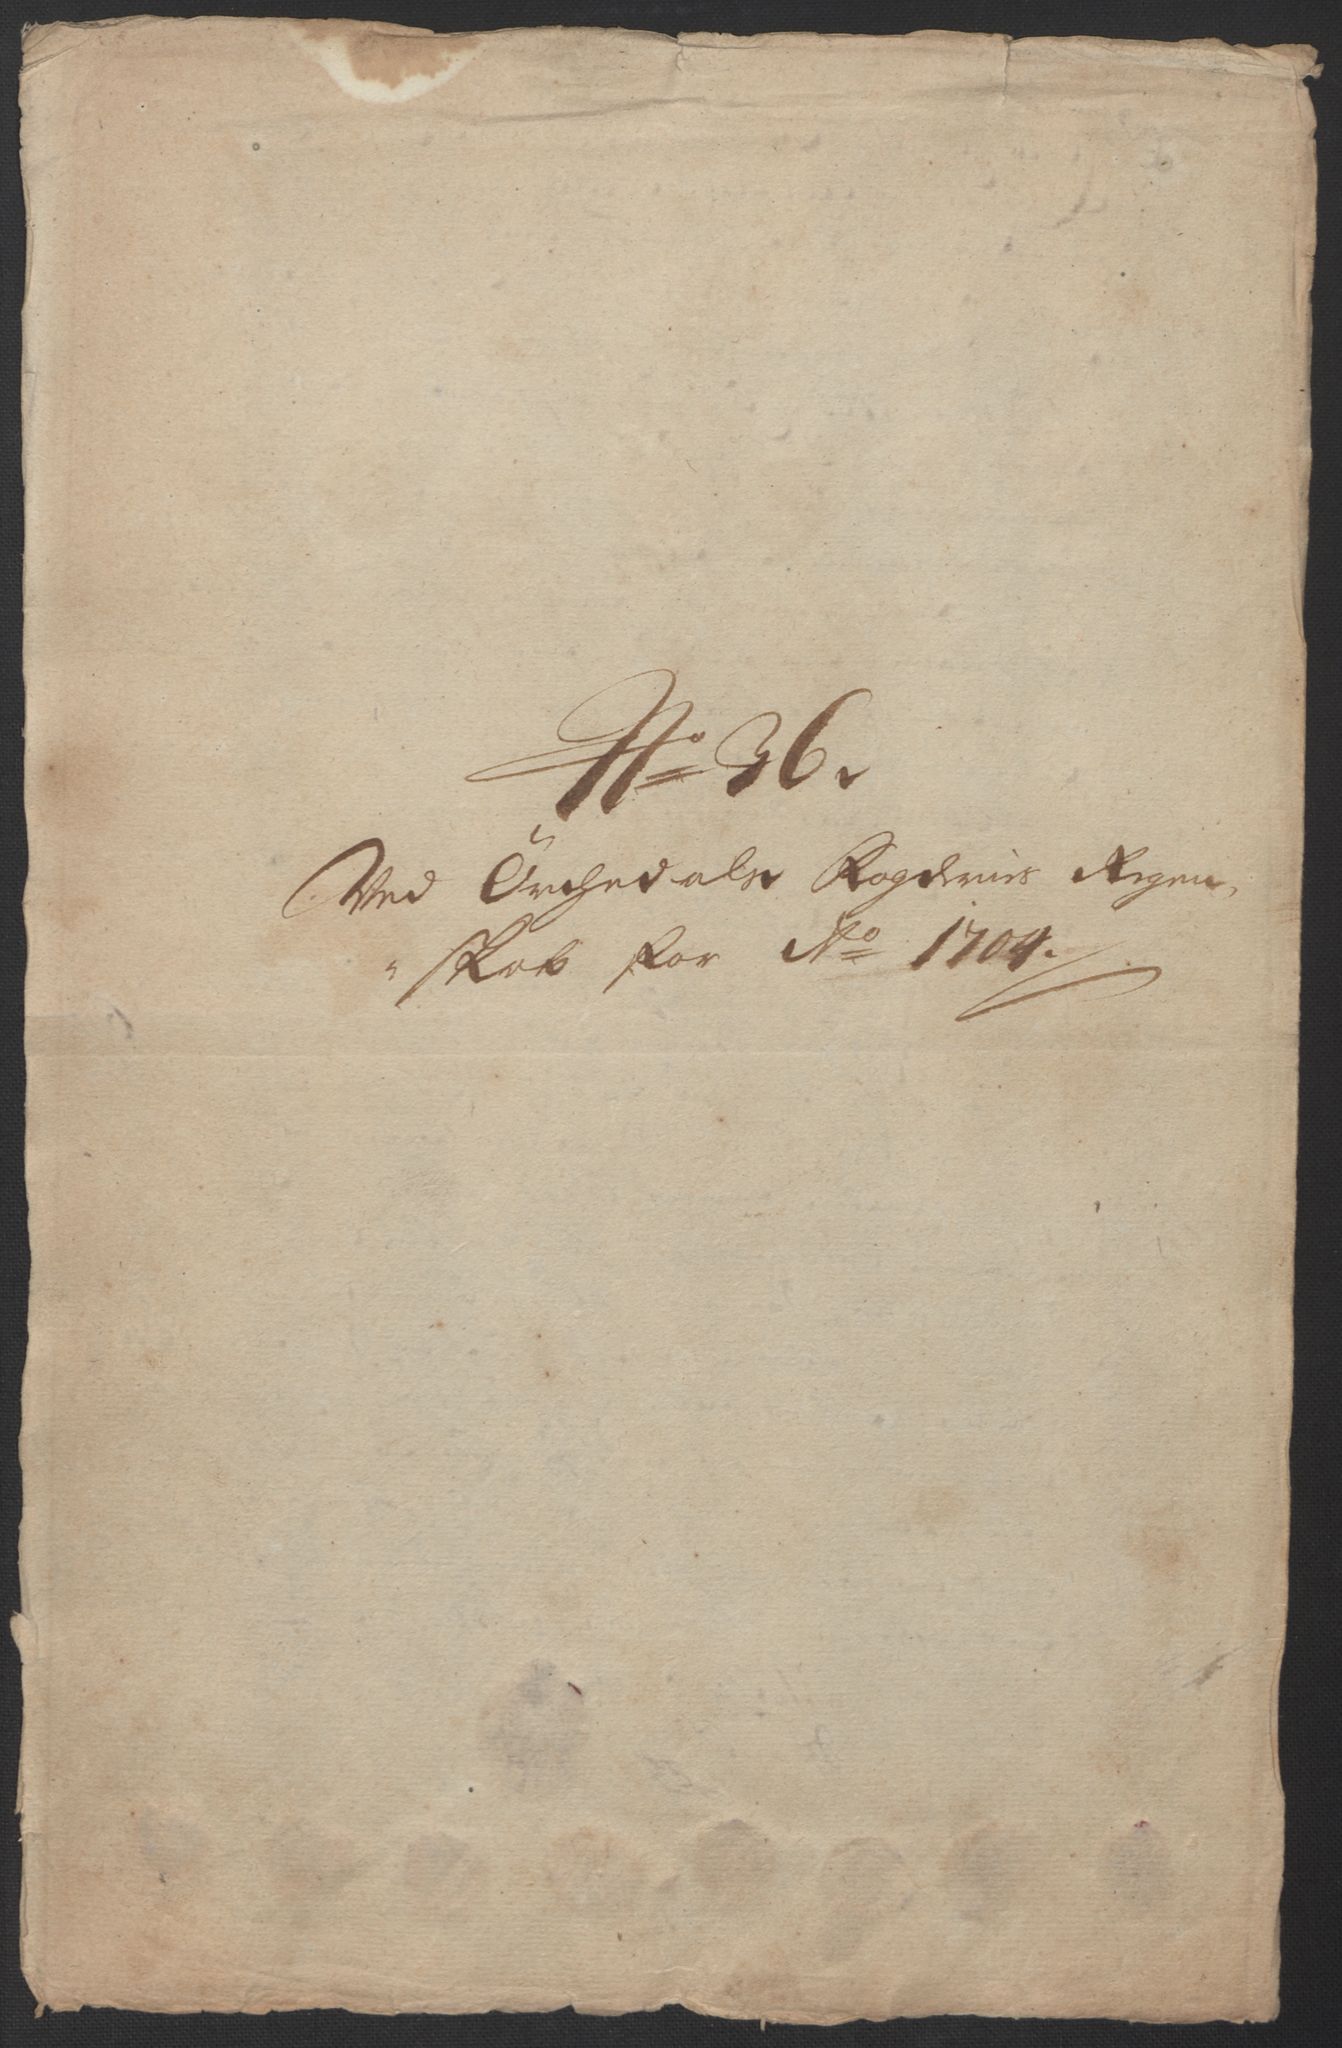 No 36.
Ved Örchedals Fogderies Regen,
"skab for Ao 1704.